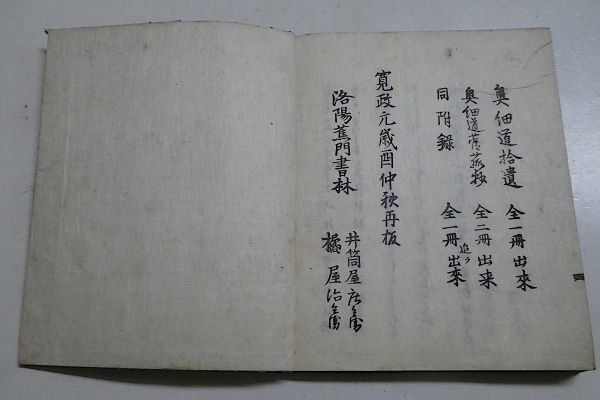 奥細道拾遺 全一冊出来
奥細道菅菰抄 全二冊出来
同附録 全一冊追ヲ出来
寛政元歳酉仲秋再板
洛陽蕉門書林
井筒屋庄兵衛
橘屋治兵衛
四